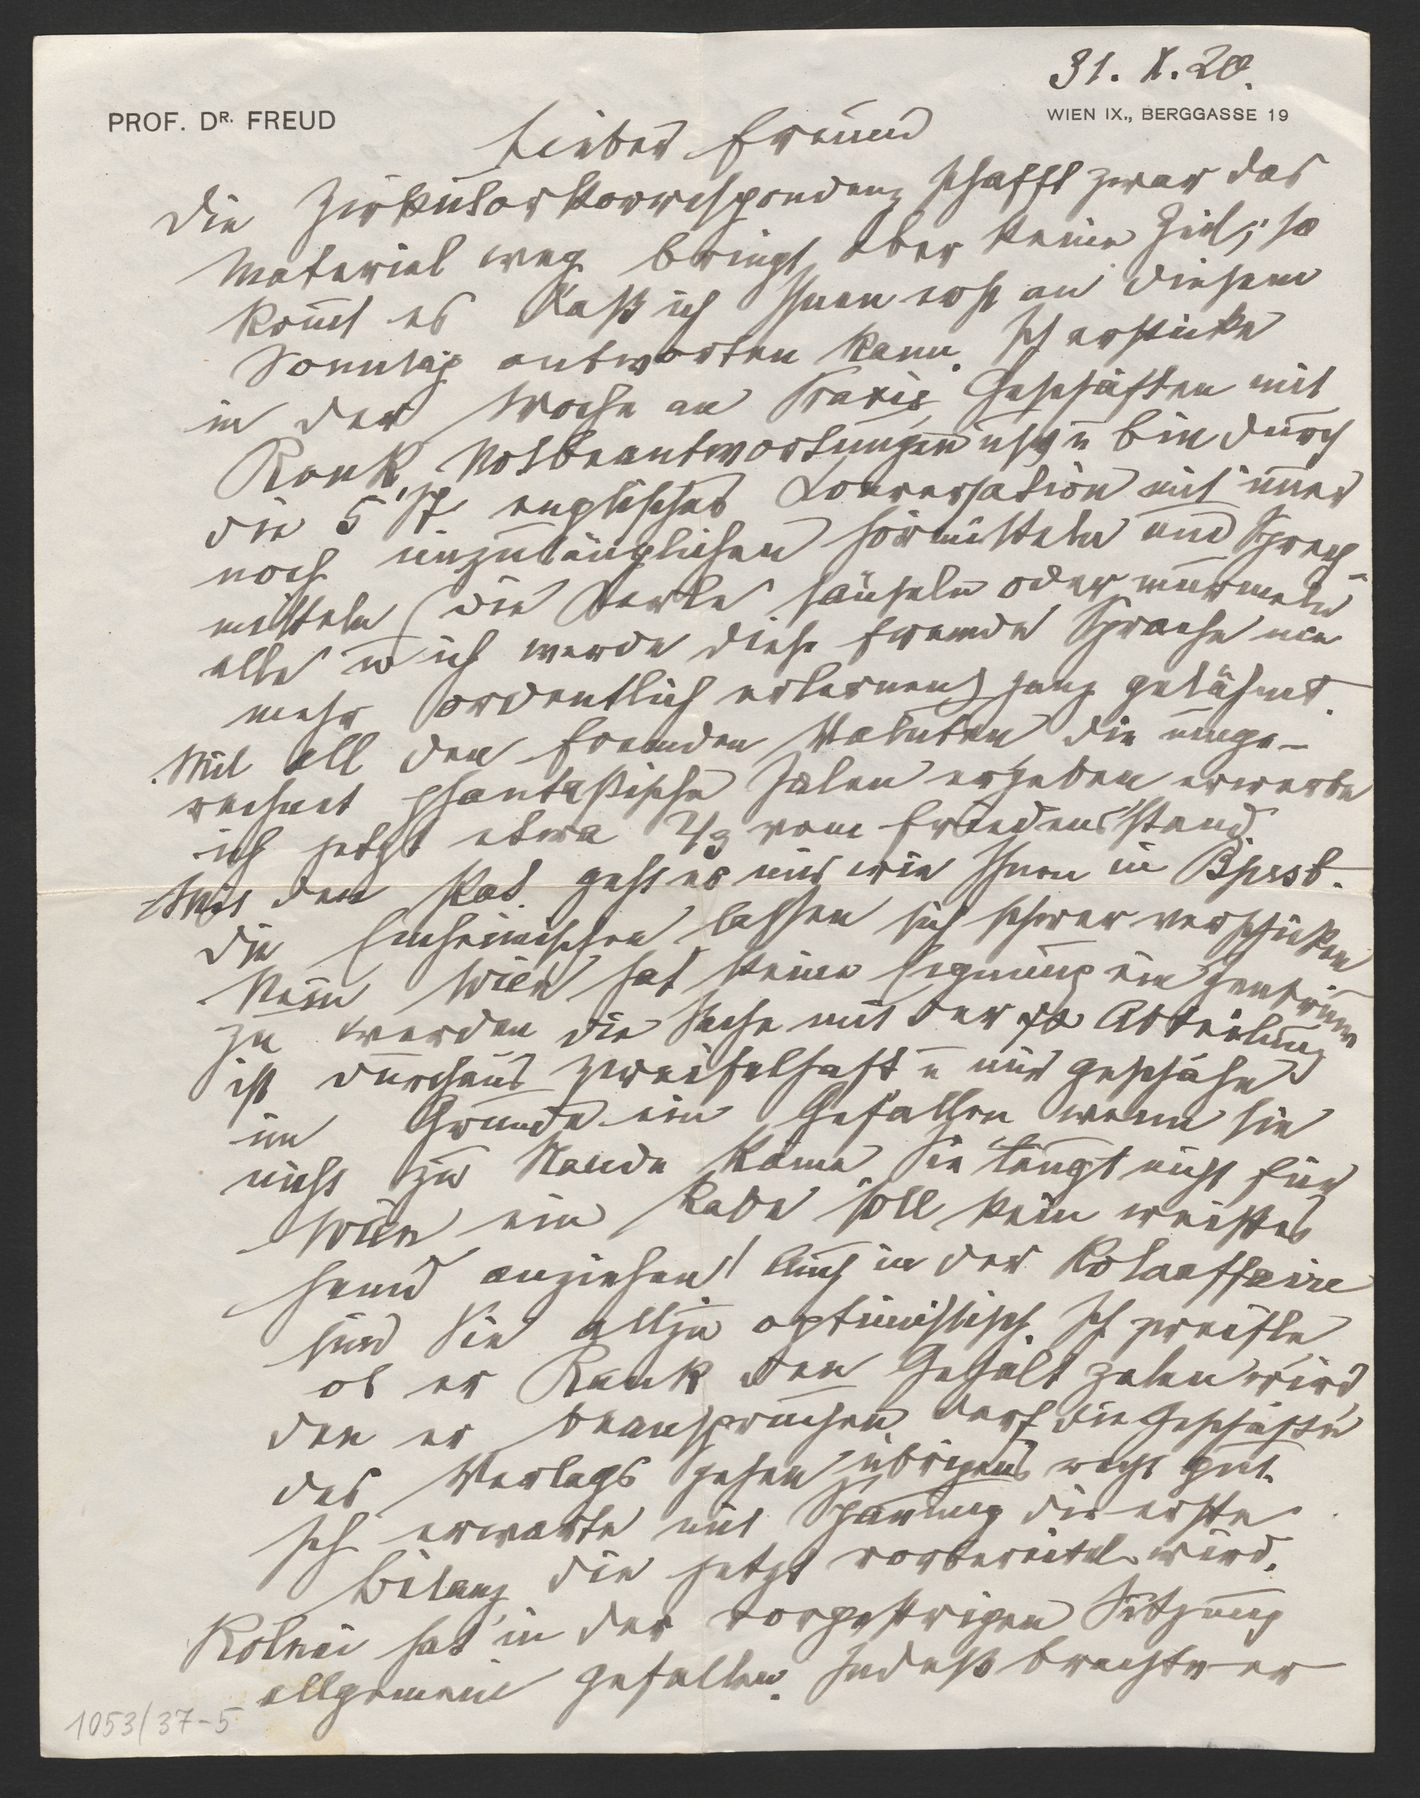 31. X. 20.
PROF. DR. FREUD
WIEN IX., BERGGASSE 19
Lieber Freund
Die Zirkularkorrespondenz schafft zwar das
Material weg bringt aber keine Zeit; so
kom̅t es daß ich Ihnen erst an diesem
Sonntag antworten kann. Ich ersticke
in der Woche an Praxis, Geschäften mit
Rank, Notbeantwortungen usw u bin durch
die 5 St englischer Conversation mit im̅er
noch unzulänglichen Hörmitteln und Sprech-
mitteln (die Kerle säuseln oder murmeln
alle u ich werde diese fremde Sprache nie
mehr ordentlich erlernen) ganz gelähmt.
Mit all den fremden Valuten die umge-
rechnet phantastische Zalen ergeben erwerbe
ich jetzt etwa 2/3 vom Friedensstand.
Mit den Pat. geht es mir wie Ihnen in Bpest.
Die Einheimischen lassen sich schwer verschicken
Nein Wien hat keine Eignung ein Zentrum
zu werden die Sache mit der ψα Abteilung
ist durchaus zweifelhaft u mir geschähe
im Grunde ein Gefallen wenn sie
nicht zu Stande käme Sie taugt nicht für
Wien ein Rabe soll kein weißes
Hemd anziehen! Auch in der Kolaaffaire
sind Sie allzu optimistisch. Ich zweifle
ob er Rank den Gehalt zalen wird,
den er beanspruchen darf die Geschäfte
des Verlags gehen übrigens recht gut.
Ich erwarte mit Spannung die erste
Bilanz die jetzt vorbereitet wird.
Kolnai hat in der vorgestrigen Sitzung
allgemein gefallen. Indeß brachte er
1053/37-5